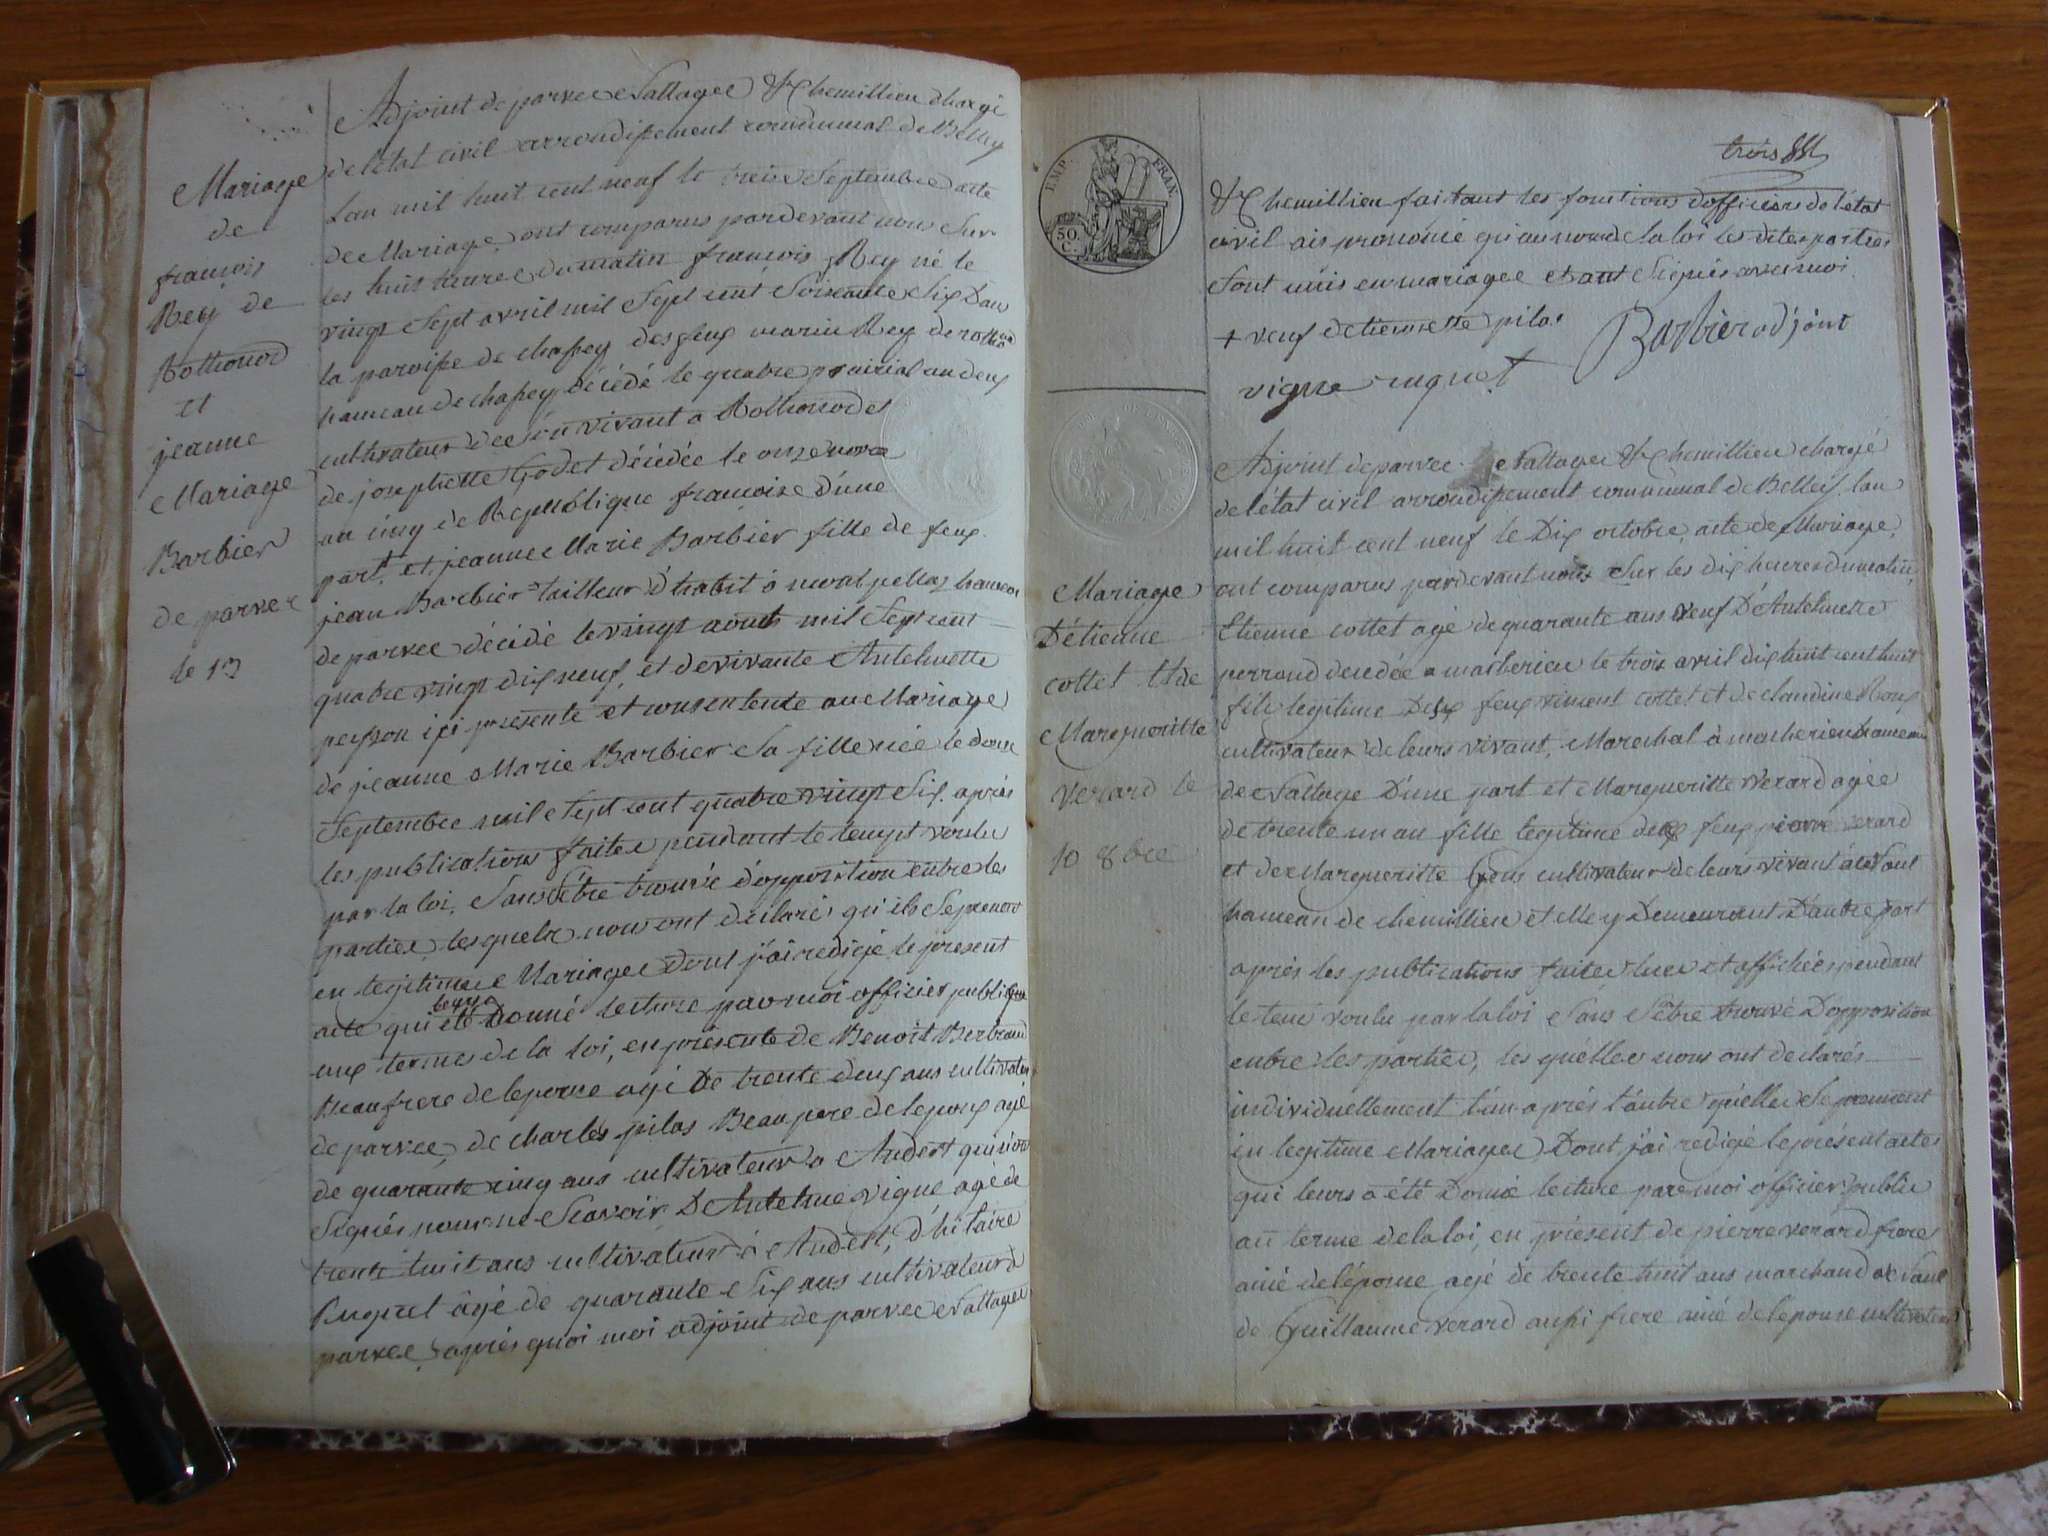 Mariage
de
françois
Rey de
Rothonod
et
jeanne
Mariage
Barbier
de parvee
le 13
Adjoint de parvee Nattagee & Chemillieu chargé
de l'état civil arrondissement communal de Belley
Lan mil huit cent neuf le treize Septembre acte
de Mariage, ont comparus pardevant nous Sur
les huit heure du matin françois Rey né le
vingt Sept avril mil Sept cent Soixante Six Dans
la paroisse de chassey des feux marin Rey de rothonod
hameau de chassey décédé le quatre prairial an deux
cultivateur de son vivant a Rothonod et
de josephette Godet décédée le onze
an cinq de République francoise D'une
part, et jeanne Marie Barbier fille de feux
jean Barbier tailleur d'habit à hameau
de parvee décédé le vingt aout mil Sept cent
quatre vingt dix neuf, et de vivante Antelmette
peysson ici presente et consentente au Mariage
de jeanne Marie Barbier Sa fille née le douze
Septembre mil Sept cent quatre vingt Six. après
les publications faites pendant le tempt voulu
par la loi, Sans Sêtre trouvé d'opposition entre les
parties, lesquels nous ont déclarés qu'ils Se prenent
en legitime Mariage Dont j'ai redigé le present
acte qui leurs été Donné lecture par moi officier publique
aux termes de la loi, en présente de Benoit Bertrand
Beaufrere de lepouse agé De trente deux ans cultivateur
de parvee, de charles pilas Beaupere de lepoux agé
de quarante cinq ans cultivateur a Andert qui n'ont
Signés pour ne Scavoir D'Antelme vigne agé de
trente huit ans cultivateur à Andert, d'hilaire
Cuquet âgé de quarante Six ans cultivateur à
parvee, après quoi moi adjoint de parvee Nattagee
EMP. FRAN
50
C.
trois
& Chemillieu faisant les fonctions d'officiers de l'état
civil ais prononcé qu'au nom de la loi les dites parties
Sont unis en mariage et ont Signés avec moi.
+ veuf detiennette pilas
Barbier adjoint
vigne cuquet
Mariage
D'étienne
cottet et de
Margueritte
Verard le
10 8bre
Adjoint de parvee Nattagee & Chemillieu chargé
de l'état civil arrondissement communal de Belley, lan
mil huit cent neuf le Dix octobre, acte de Mariage,
ont comparus pardevant nous Sur les dix heures du matin,
Etienne cottet agé de quarante ans veuf D'Antelmette
perroud decedée a macherieu le trois avril dix huit cent huit
fils legitime Des feux viment cottet et de claudine Roux
cultivateur de leurs vivant, Marechal à macherieu hameau
de Nattage D'une part et Margueritte Verard agée
de trente un an fille legitime des feux pierre verard
et de Margueritte Gous cultivateur de leurs vivant à
hameau de chemillieu et elle y Demeurant D'autre part
après les publications faites lues et affichées pendant
le tems voulu par la loi Sans Sêtre trouvé D'opposition
entre les parties, les quelles nous ont declarés
individuellement l'un après l'autre quelles Se prennent
en legitime Mariage, Dont j'ai redigé le présent acte
qui leurs a été Donné lecture par moi officier public
au terme de la loi, en présent de pierre verard frere
ainé de lépouse agé de trente huit ans marchand
de Guillaume verard aussi frere ainé de lepouse cultivateur